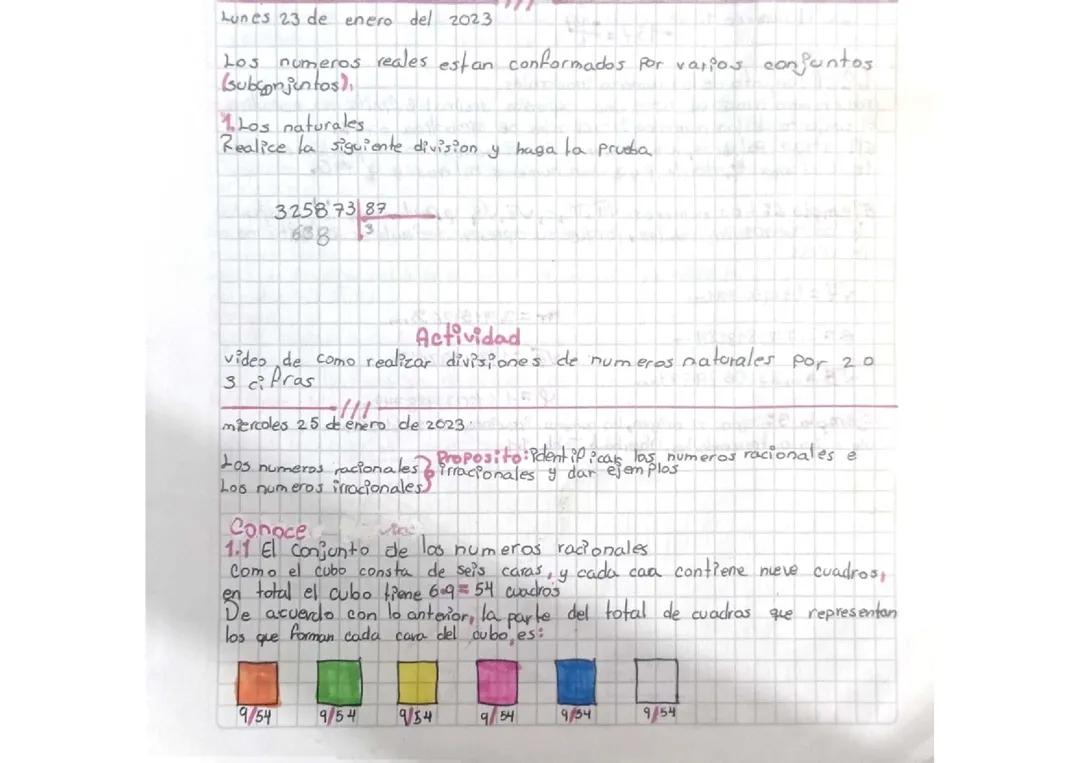 Lunes 23 de enero del 2023
Los numeros reales estan conformados por varios conjuntos
(subconjuntos).
1. Los naturales
Realice la siguiente division y haga la prueba
325873 87
638 3
Actividad
video de como realizar divisiones de numeros naturales por 2 o
3 cifras
///
miercoles 25 de enero de 2023.
Los numeros racionales
Los numeros irracionales
Proposito: identificar los numeros racionales e
irracionales y dar ejemplos
Conoce
1.1 El conjunto de los numeros racionales
Como el cubo consta de seis caras, y cada caa contiene nueve cuadros,
en total el cubo tiene 6·9 = 54 cuadros
De acuerdo con lo anterior, la parte del total de cuadros que representan
los que forman cada cara del cubo, es:
9/54 9/54 9/54 9/54 9/54 9/54